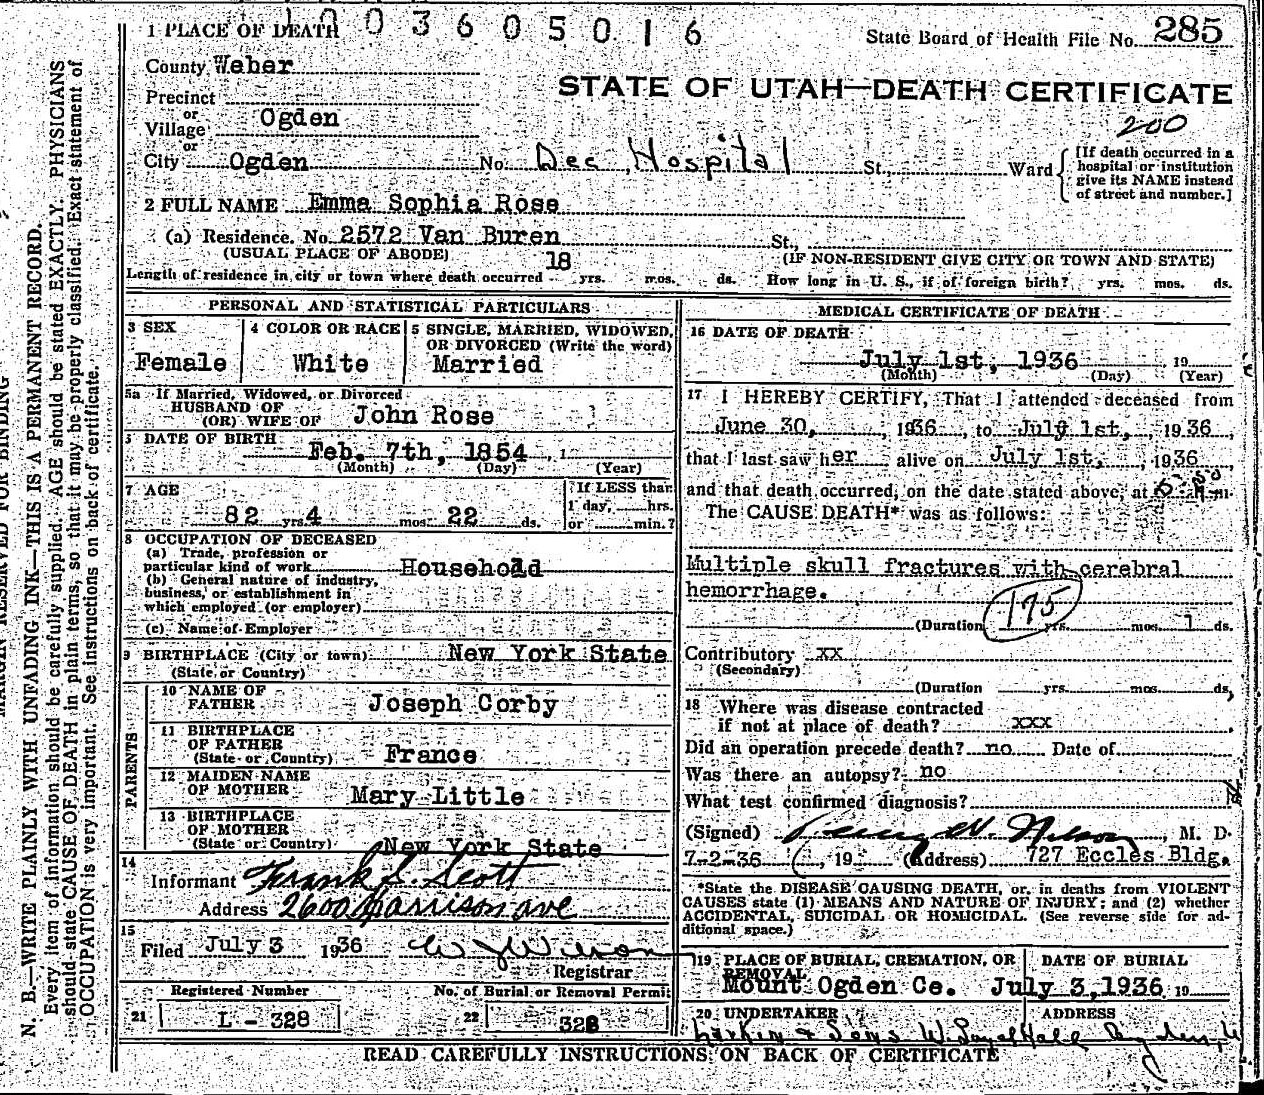 1003605016
1 PLACE OF DEATH
State Board of Health File No. 285
County Weber
STATE OF UTAH—DEATH CERTIFICATE
Precinct
or
Village Ogden
200
or
City Ogden No. Dee Hospital St., Ward
[If death occurred in a
hospital or institution
give its NAME instead
of street and number.]
2 FULL NAME Emma Sophia Rose
(a) Residence. No. 2572 Van Buren St.,
(USUAL PLACE OF ABODE) (IF NON-RESIDENT GIVE CITY OR TOWN AND STATE)
Length of residence in city or town where death occurred 18 yrs. mos. ds. How long in U. S., if of foreign birth? yrs. mos. ds.
PERSONAL AND STATISTICAL PARTICULARS
3 SEX
Female
4 COLOR OR RACE
White
5 SINGLE, MARRIED, WIDOWED,
OR DIVORCED (Write the word)
Married
5a If Married, Widowed, or Divorced
HUSBAND OF
(OR) WIFE OF John Rose
DATE OF BIRTH
Feb. 7th, 1854, 1
(Month) (Day) (Year)
7 AGE
82 yrs 4 mos 22 ds.
If LESS than
1 day, hrs.
or min.?
8 OCCUPATION OF DECEASED
(a) Trade, profession or
particular kind of work Household
(b) General nature of industry,
business, or establishment in
which employed (or employer)
(c) Name of Employer
9 BIRTHPLACE (City or town) New York State
(State or Country)
PARENTS
10 NAME OF
FATHER Joseph Corby
11 BIRTHPLACE
OF FATHER
(State or Country) France
12 MAIDEN NAME
OF MOTHER Mary Little
13 BIRTHPLACE
OF MOTHER
(State or Country) New York State
14
Informant Frank S. Scott
Address 2600 Harrison ave
15
Filed July 3 1936
Registrar
Registered Number No. of Burial or Removal Permit
21 L - 328 22 328
MEDICAL CERTIFICATE OF DEATH
16 DATE OF DEATH
July 1st, 1936 19
(Month) (Day) (Year)
17 I HEREBY CERTIFY, That I attended deceased from
June 30, , 1936, to July 1st, , 1936,
that I last saw her alive on July 1st, , 1936,
and that death occurred, on the date stated above, at m.
The CAUSE DEATH* was as follows:
Multiple skull fractures with cerebral
hemorrhage.
175
(Duration yrs. mos. 1 ds.
Contributory xx
(Secondary)
(Duration yrs. mos. ds,
18 Where was disease contracted
if not at place of death? xxx
Did an operation precede death? no Date of
Was there an autopsy? no
What test confirmed diagnosis?
(Signed) W. Nelson, M. D.
7-2-36, 19 (Address) 727 Eccles Bldg.
*State the DISEASE CAUSING DEATH, or, in deaths from VIOLENT
CAUSES state (1) MEANS AND NATURE OF INJURY; and (2) whether
ACCIDENTAL, SUICIDAL OR HOMICIDAL. (See reverse side for ad-
ditional space.)
19 PLACE OF BURIAL, CREMATION, OR
REMOVAL
Mount Ogden Ce.
DATE OF BURIAL
July 3,1936 19
20 UNDERTAKER ADDRESS
Larkin & Sons
READ CAREFULLY INSTRUCTIONS ON BACK OF CERTIFICATE
MARGIN RESERVED FOR BINDING
N. B.—WRITE PLAINLY WITH UNFADING INK—THIS IS A PERMANENT RECORD.
Every item of information should be carefully supplied. AGE should be stated EXACTLY. PHYSICIANS
should state CAUSE OF DEATH in plain terms, so that it may be properly classified. Exact statement of
OCCUPATION is very important. See instructions on back of certificate.